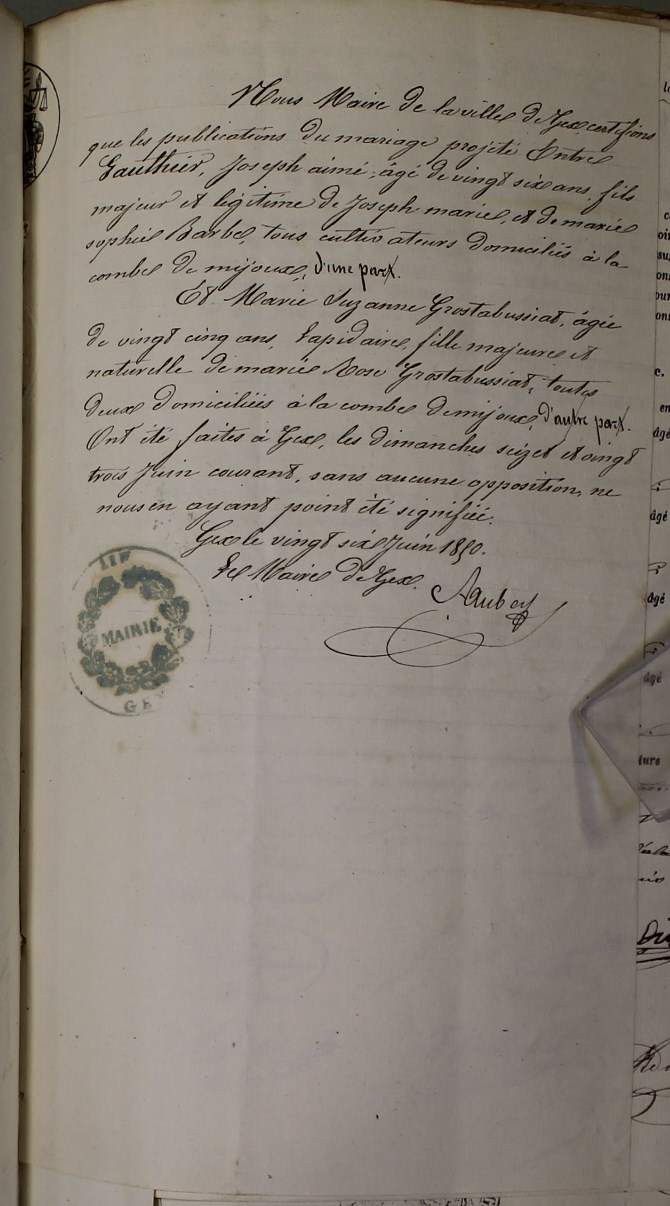 Nous Maire de la ville de Gex certifions
que les publications du mariage projeté Entre
Gauthier, Joseph aimé, âgé de vingt six ans, fils
majeur et légitime de Joseph marie, et de marie
sophie Barbe, tous cultivateurs domiciliés à la
combe de mijoux, d'une part.
Et Marie Suzanne Grostabussiat, âgée
de vingt cinq ans, Lapidaire, fille majeure et
naturelle de marie Rose Grostabussiat, toutes
deux domiciliées à la combe de mijoux, d'autre part.
Ont été faites à Gex, les dimanches seize et vingt
trois Juin courant, sans aucune opposition, ne
nous en ayant point été signifiée.
Gex le vingt six Juin 1850.
Le Maire de Gex.
MAIRIE
GEX